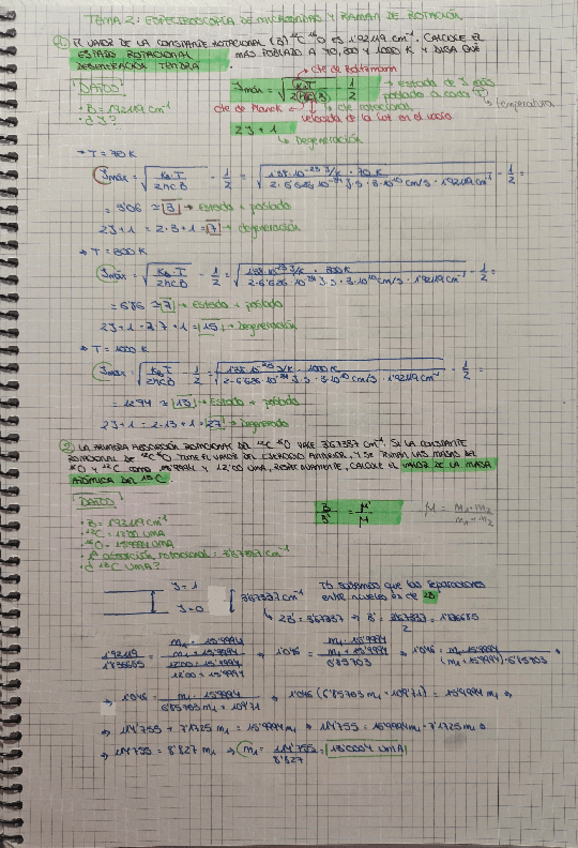 TEMA 2: ESPECTROSCOPÍA DE MICROONDAS Y RAMAN DE ROTACIÓN
① EL VALOR DE LA CONSTANTE ROTACIONAL (B) ¹²C ¹⁶O ES 1'92119 cm⁻¹. CALCULE EL
ESTADO ROTACIONAL MÁS POBLADO A 70, 300 Y 1000 K Y DIGA QUÉ
DEGENERACIÓN TENDRÁ.
DATOS
· B = 1'92119 cm⁻¹
· ¿J?
cte de Boltzmann
Jmáx = √(KB T / 2hcB) - 1/2
→ estado de J más
poblado a cada (T)
↳ temperatura
cte de Planck
cte rotacional
velocidad de la luz en el vacío
2J + 1
↳ Degeneración
→ T = 70 K
Jmáx = √(KB·T / 2hcB) - 1/2 = √(1'38·10⁻²³ J/K · 70 K / 2·6'626·10⁻³⁴ J·s · 3·10¹⁰ cm/s · 1'92119 cm⁻¹) - 1/2 =
= 3'06 ≈ 3 → Estado + poblado
2J + 1 = 2·3 + 1 = 7 → degeneración
→ T = 300 K
Jmáx = √(KB·T / 2hcB) - 1/2 = √(1'38·10⁻²³ J/K · 300 K / 2·6'626·10⁻³⁴ J·s · 3·10¹⁰ cm/s · 1'92119 cm⁻¹) - 1/2 =
= 6'86 ≈ 7 → Estado + poblado
2J + 1 = 2·7 + 1 = 15 → Degeneración
→ T = 1000 K
Jmáx = √(KB·T / 2hcB) - 1/2 = √(1'38·10⁻²³ J/K · 1000 K / 2·6'626·10⁻³⁴ J·s · 3·10¹⁰ cm/s · 1'92119 cm⁻¹) - 1/2 =
= 12'94 ≈ 13 → Estado + poblado
2J + 1 = 2·13 + 1 = 27 →
② LA PRIMERA ABSORCIÓN ROTACIONAL DEL ¹³C ¹⁶O VALE 3'67337 cm⁻¹. SI LA CONSTANTE
ROTACIONAL DE ¹²C ¹⁶O TIENE EL VALOR DEL EJERCICIO ANTERIOR, Y SE TOMAN LAS MASAS DEL
¹⁶O Y ¹²C COMO 15'9994 Y 12'00 UMA, RESPECTIVAMENTE, CALCULE EL VALOR DE LA MASA
ATÓMICA DEL ¹³C.
DATOS
· B = 1'92119 cm⁻¹
· ¹²C = 12'00 UMA
· ¹⁶O = 15'9994 UMA
· 1ª absorción rotacional = 3'67337 cm⁻¹
· ¿¹³C UMA?
B/B' = μ'/μ
μ = m₁·m₂ / m₁+m₂
J=1
J=0
3'67337 cm⁻¹
Tb sabemos que las separaciones
entre niveles es de 2B
↳ 2B' = 3'67337 → B' = 3'67337/2 = 1'836685
1'92119/1'836685 = (m₁·15'9994 / m₁+15'9994) / (12'00·15'9994 / 12'00+15'9994) → 1'046 = (m₁·15'9994 / m₁+15'9994) / 6'85703 → 1'046 = m₁·15'9994 / (m₁+15'9994)·6'85703 →
→ 1'046 = m₁·15'9994 / 6'85703 m₁ + 109'71 → 1'046 (6'85703 m₁ + 109'71) = 15'9994 m₁ →
→ 114'755 + 7'1725 m₁ = 15'9994 m₁ → 114'755 = 15'9994 m₁ - 7'1725 m₁ →
→ 114'755 = 8'827 m₁ → m₁ = 114'755/8'827 = 13'0004 UMA